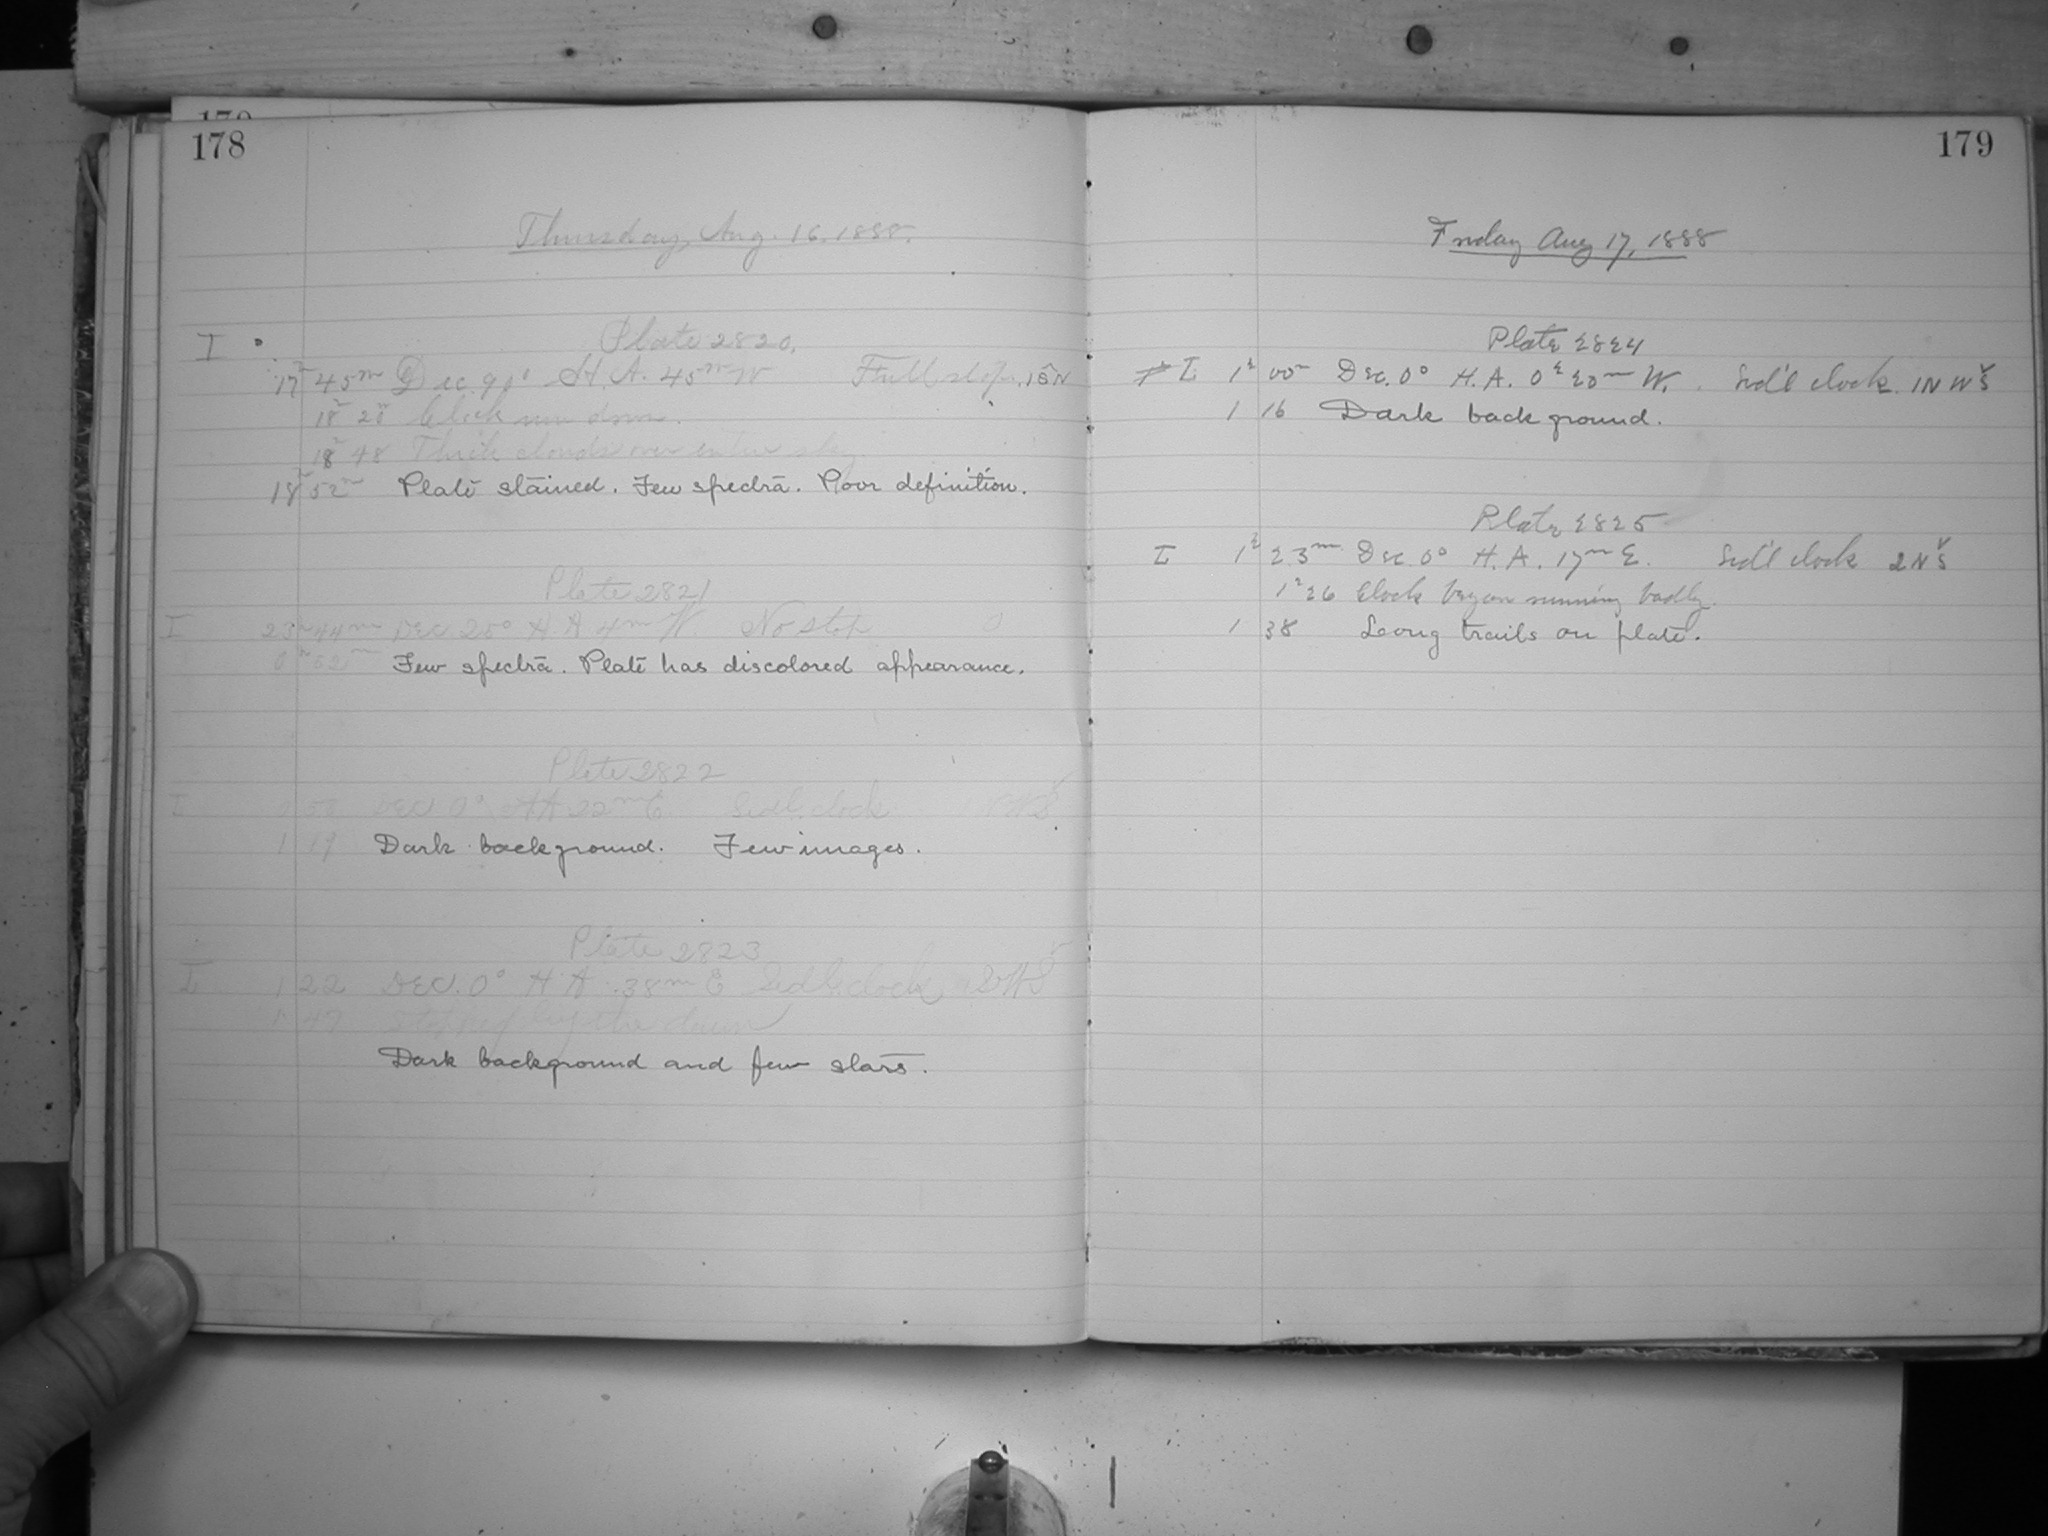 178
Thursday, Aug. 16, 1888.
Plate 2820.
I 17h 45m Dec. 90° H A. 45m W Full stop.
18 20 Clock run down.
18 48 Thick clouds over entire sky
18h 52m Plate stained. Few spectra. Poor definition.
Plate 2821
I 23h 44m Dec 20° H A 4m W. No stop 0
0h 52m Few spectra. Plate has discolored appearance.
Plate 2822
I Dec 0° H A 22m E Sidl. clock
1 19 Dark background. Few images.
Plate 2823
I 1 22 Dec. 0° H A. 38m E Sidl. clock
1 47 Stopped by the dawn
Dark background and few stars.
179
Friday Aug 17, 1888
Plate 2824
I 1h 00m Dec. 0° H. A. 0h 20m W. Sid'l clock. 1N W S
1 16 Dark back ground.
Plate 2825
I 1h 23m Dec. 0° H. A. 17m E. Sid'l clock 2 N S
1h 26 Clock began running badly.
1 38 Long trails on plate.